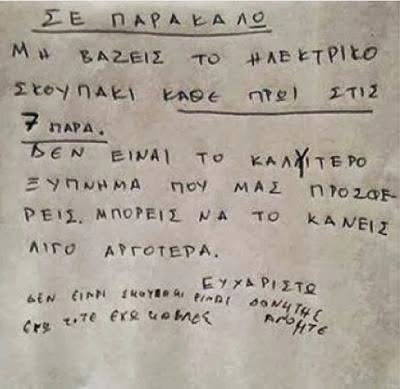 ΣΕ ΠΑΡΑΚΑΛΩ
ΜΗ ΒΑΖΕΙΣ ΤΟ ΗΛΕΚΤΡΙΚΟ
ΣΚΟΥΠΑΚΙ ΚΑΘΕ ΠΡΩΙ ΣΤΙΣ
7 ΠΑΡΑ.
ΔΕΝ ΕΙΝΑΙ ΤΟ ΚΑΛΥΤΕΡΟ
ΞΥΠΝΗΜΑ ΠΟΥ ΜΑΣ ΠΡΟΣΦΕ-
ΡΕΙΣ. ΜΠΟΡΕΙΣ ΝΑ ΤΟ ΚΑΝΕΙΣ
ΛΙΓΟ ΑΡΓΟΤΕΡΑ.
ΕΥΧΑΡΙΣΤΩ
ΔΕΝ ΕΙΝΑΙ ΣΚΟΥΠΑΚΙ ΕΙΝΑΙ ΔΟΝΗΤΗΣ
ΕΓΩ ΤΟΤΕ ΕΧΩ ΚΑΒΛΕΣ